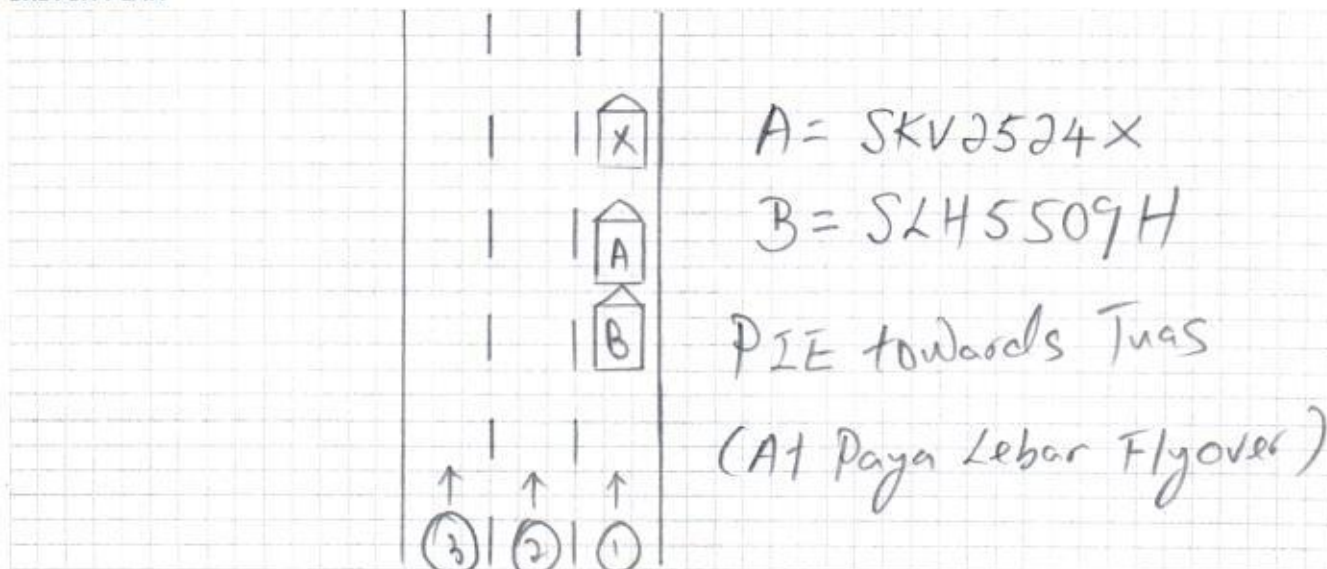 X
A
B
3 2 1
A = SKV2524X
B = SLH5509H
PIE towards Tuas
(At Paya Lebar Flyover)